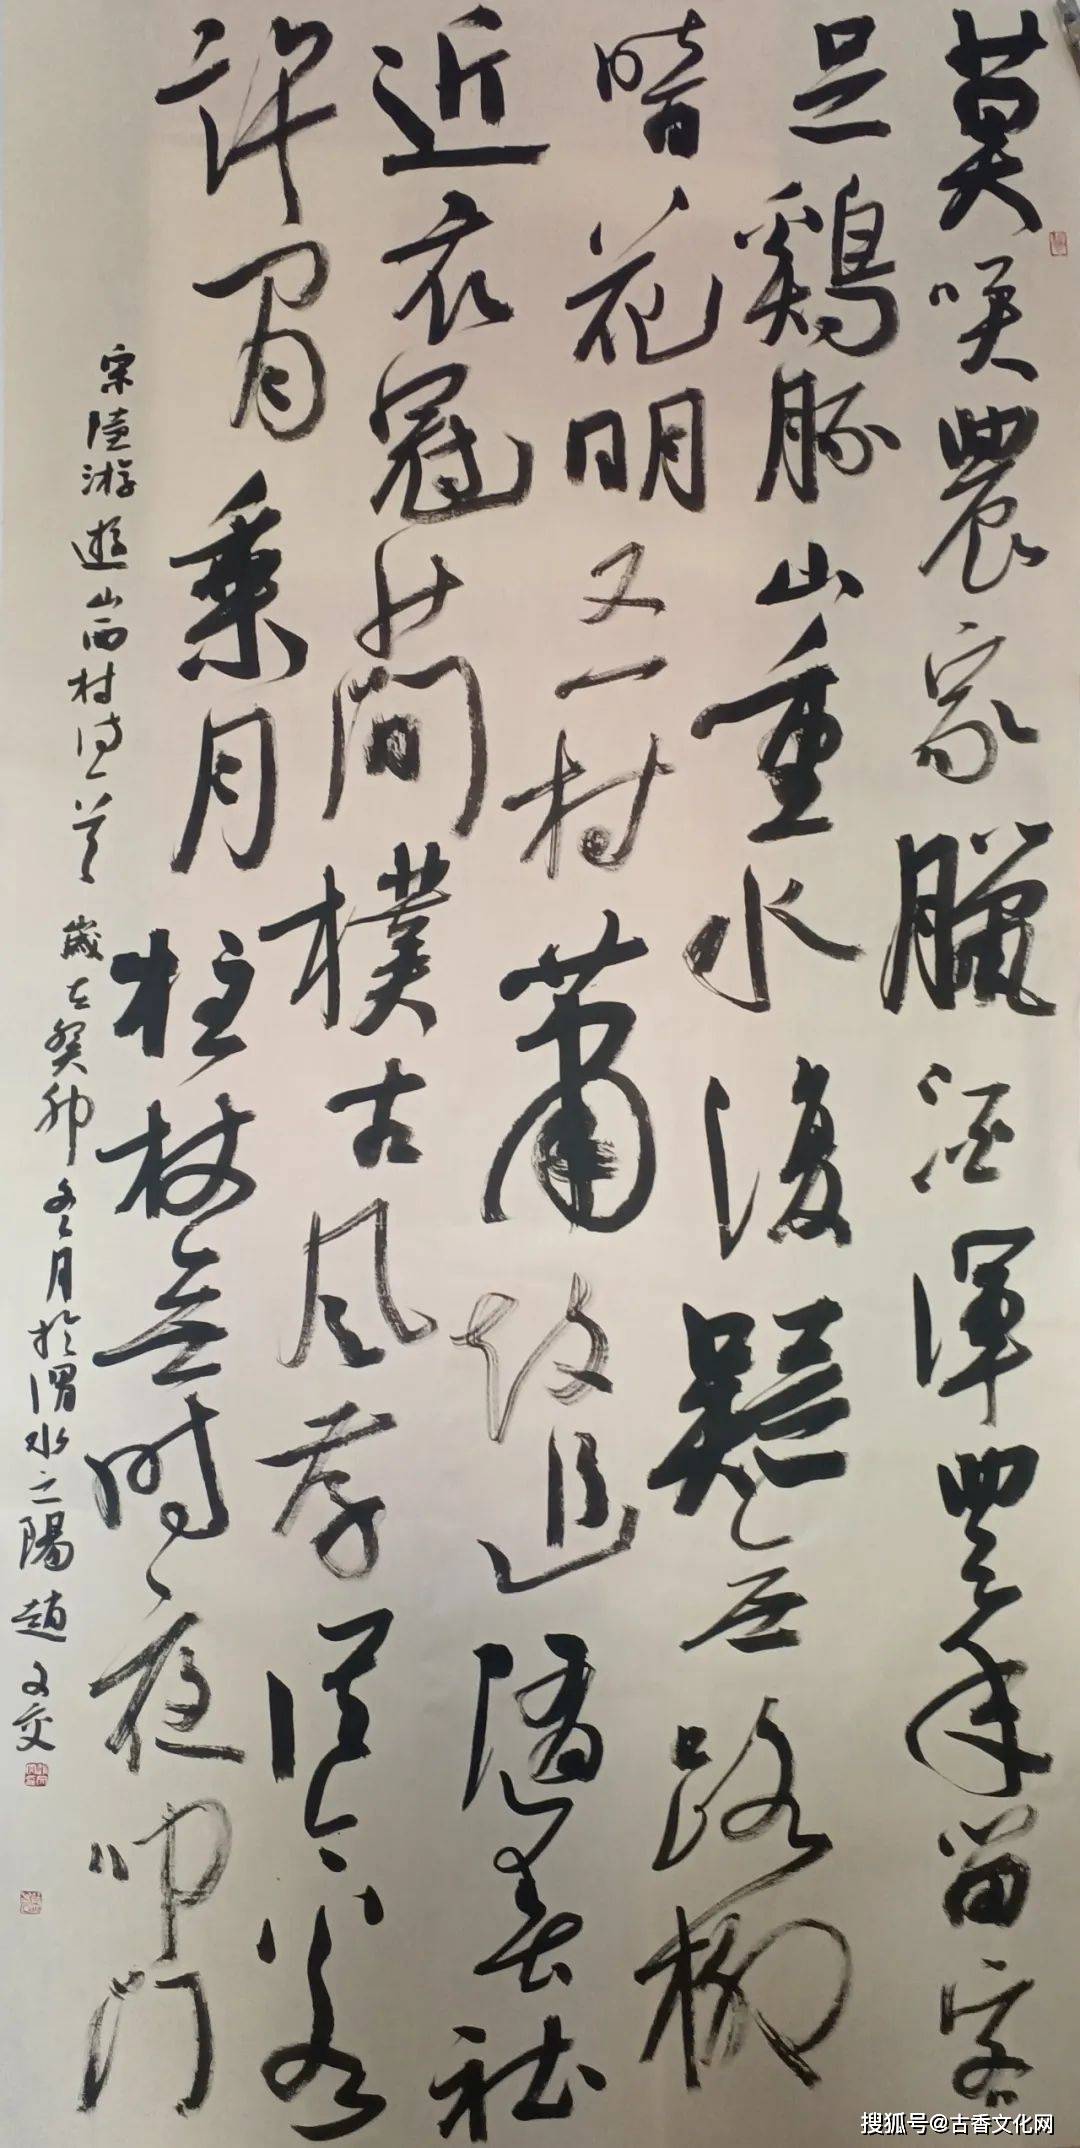 莫笑農家臘酒渾豐年留客
足鷄豚山重水復疑無路柳
暗花明又一村蕭鼓追隨春社
近衣冠簡樸古風存從今若
許閒乘月柱杖無時夜叩門
宋陸游遊山西村詩一首 歲在癸卯冬月於渭水之陽趙文交
搜狐号@古香文化网